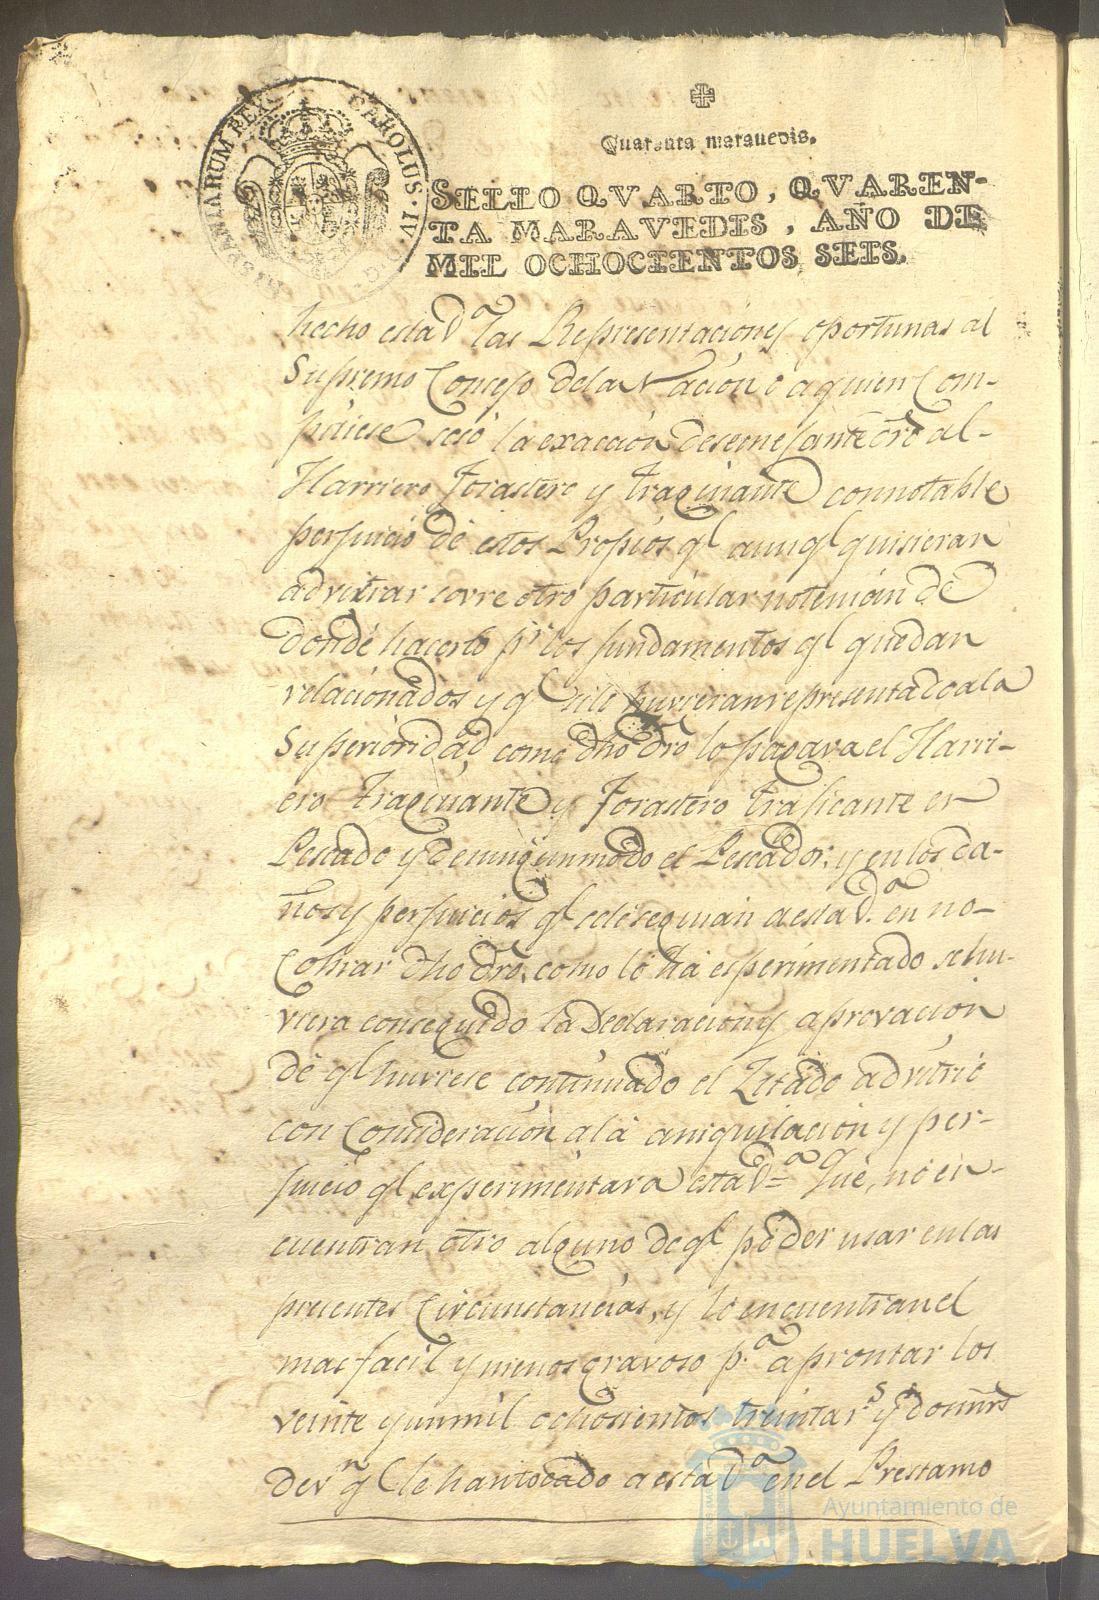 HISPANIARUM REX
CAROLUS·IV·D·G·
Quarenta marauedis.
SELLO QVARTO, QVAREN-
TA MARAVEDIS, AÑO DE
MIL OCHOCIENTOS SEIS.
hecho esta V.ª las Representaciones oportunas al
Supremo Concejo dela Nación o aquien Com-
la exacción desemejante dró al-
Harriero forastero y traginante connotable
perjuicio de estos Propios ql aunql quisieran
advitrar sovre otro particular notenian de
donde hacerlo pr los fundamentos ql quedan
relacionados y ql silo huvieran representado ala
Superioridad, como dho dro lo pagava el Harri-
ero traginante y forastero traficante en
Pescado y de ningun modo el Pescador; y en los da-
ños y perjuicios ql sele seguian a esta V.ª en no-
Cobrar dho dro, como lo ha esperimentado sehu-
viera conseguido la Declaracion y aprovacion
de ql huviese continuado el Zitado advitrio
con Consideracion ala aniquilacion y per-
juicio ql experimentava esta V.ª Que, no en-
cuentran otro alguno de ql poder usar en las
presentes Circunstancias, y lo encuentran el
mas facil y menos gravoso p.ª aprontar los
veinte y un mil ochosientos treinta r.s y dos mrs
de vn ql le han tocado a esta V.ª en el Prestamo
Ayuntamiento de
HUELVA